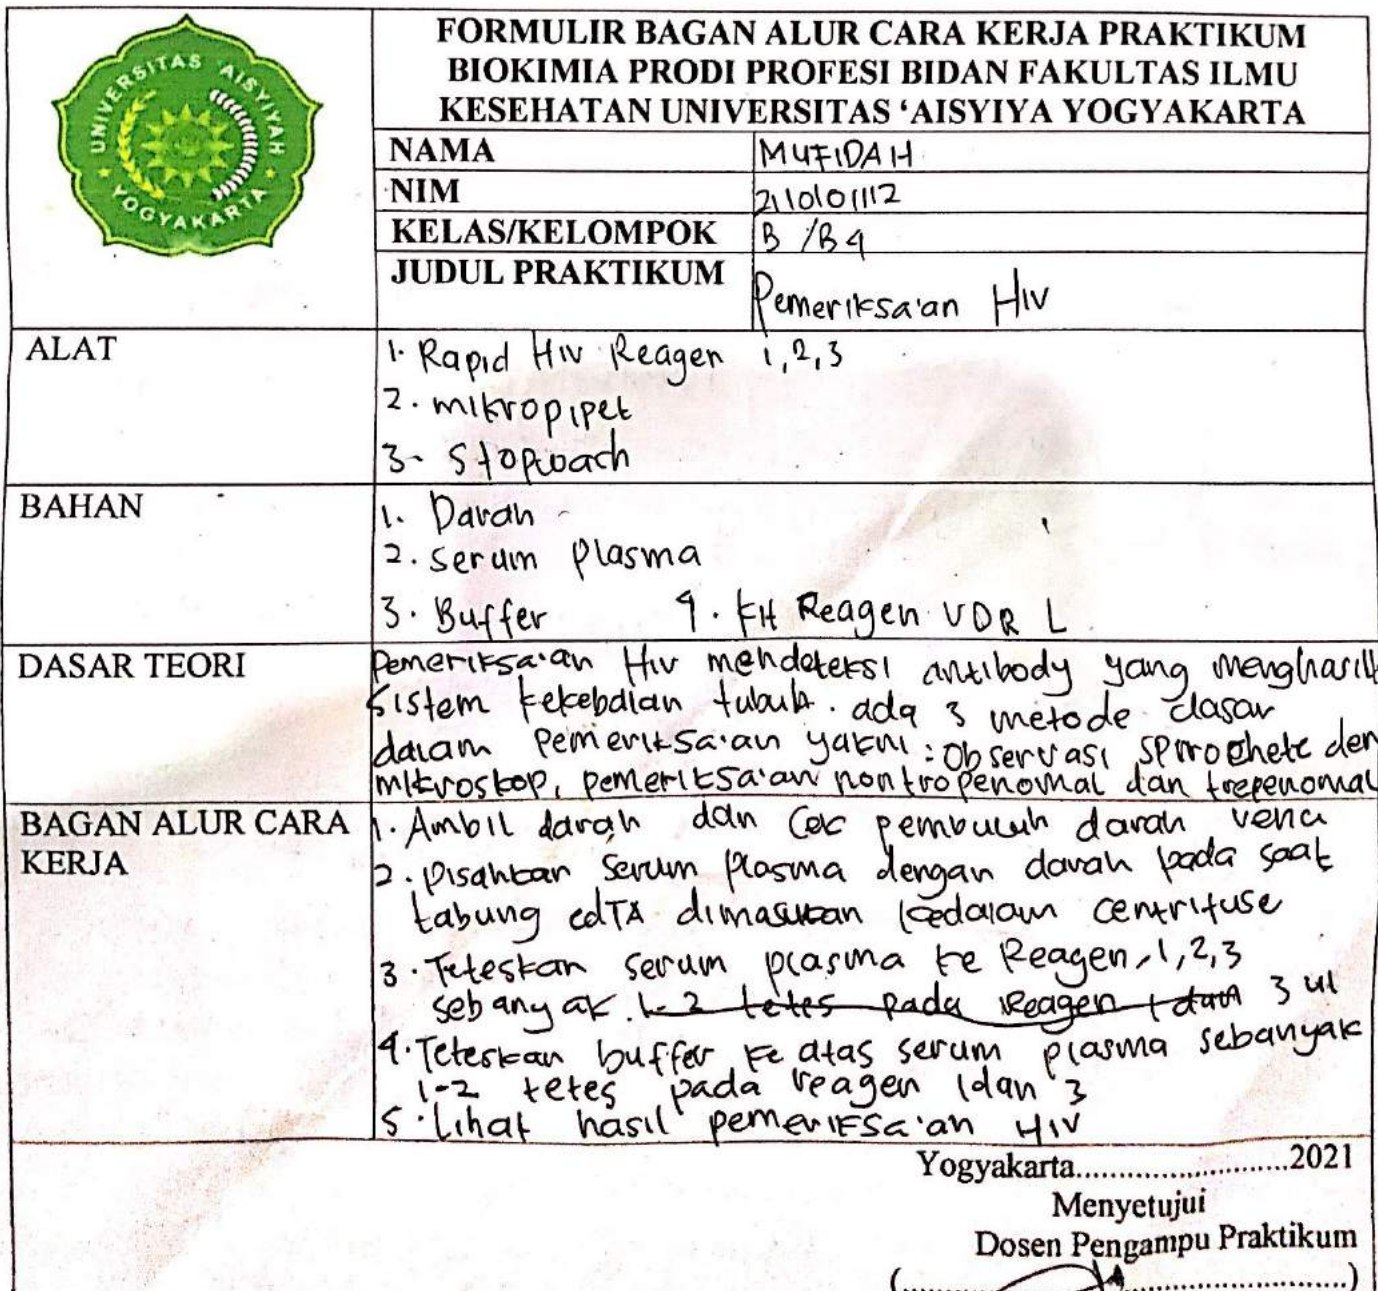 UNIVERSITAS 'AISYIYAH
YOGYAKARTA
FORMULIR BAGAN ALUR CARA KERJA PRAKTIKUM
BIOKIMIA PRODI PROFESI BIDAN FAKULTAS ILMU
KESEHATAN UNIVERSITAS ‘AISYIYA YOGYAKARTA
NAMA MUFIDAH
NIM 2110101112
KELAS/KELOMPOK B /B4
JUDUL PRAKTIKUM Pemeriksa'an HIV
ALAT
1. Rapid HIV Reagen 1,2,3
2. mikropipet
3- Stopwach
BAHAN
1. Darah
2. serum Plasma
3. Buffer 4. Reagen VDR L
DASAR TEORI
Pemeriksa'an HIV mendeteksi antibody yang menghasilk
sistem kekebalan tubuh. ada 3 metode dasar
dalam Pemeriksa'an yakni: Observasi spirochete den
mikroskop, pemeriksa'an nontropenomal dan trepenomal
BAGAN ALUR CARA
KERJA
1. Ambil darah dan Cek pembuluh darah vena
2. pisahkan serum Plasma dengan darah pada saat
tabung edTA dimasukan kedalam centrifuse
3. Teteskan serum plasma ke Reagen 1,2,3
sebanyak 1-2 tetes pada Reagen 1 dan 3 ul
4. Teteskan buffer ke atas serum plasma sebanyak
1-2 tetes pada reagen 1dan 3
5. Lihat hasil pemeriksa'an HIV
Yogyakarta..........................2021
Menyetujui
Dosen Pengampu Praktikum
(..................................................)